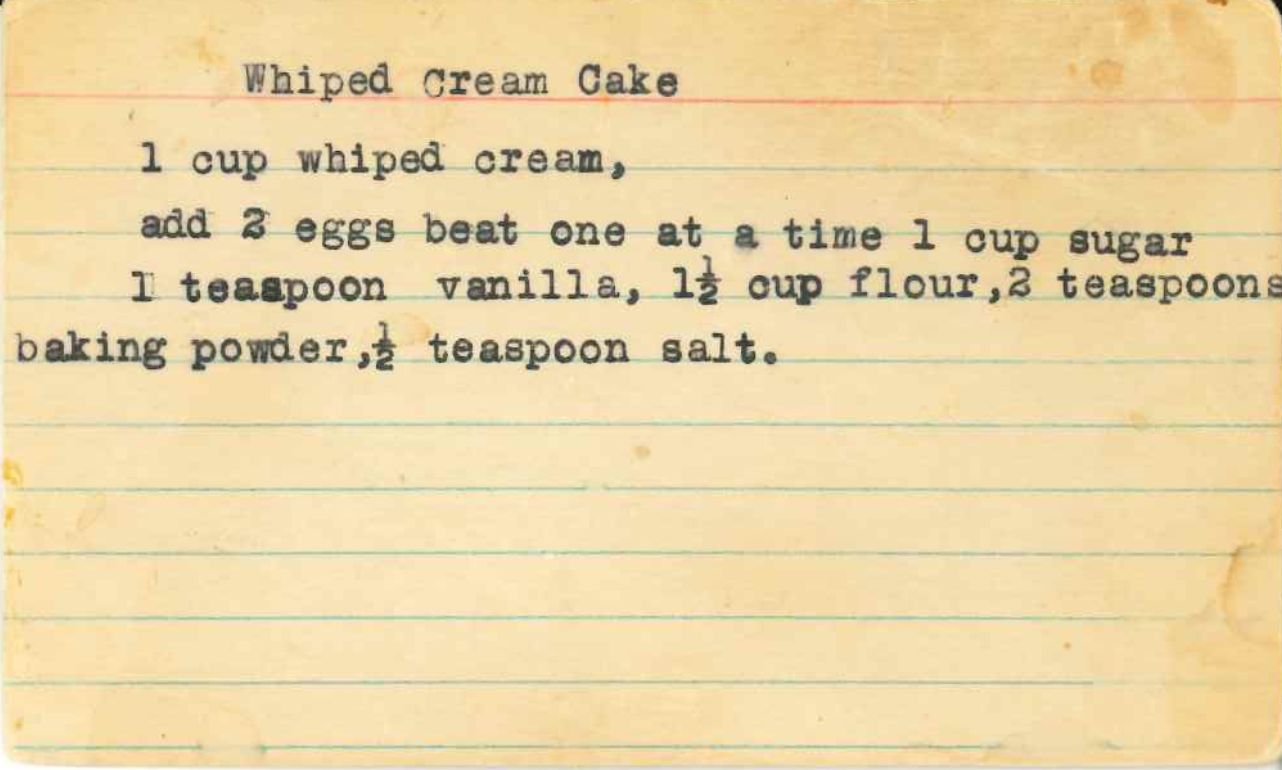 Whiped Cream Cake
1 cup whiped cream,
add 2 eggs beat one at a time 1 cup sugar
1 teaspoon vanilla, 1½ cup flour,2 teaspoons
baking powder,½ teaspoon salt.